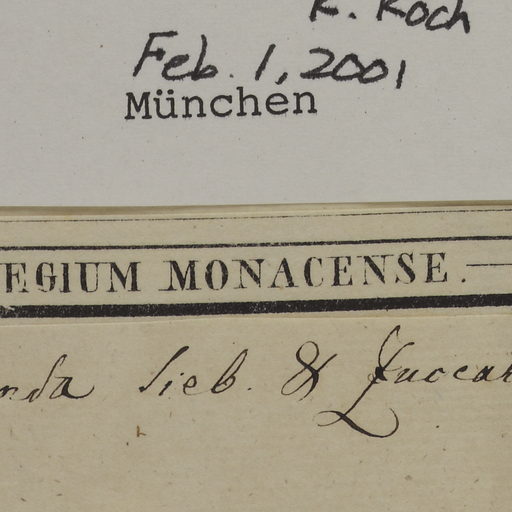 K. Koch
Feb. 1, 2001
München
EGIUM MONACENSE.
nda Sieb. & Zuccar